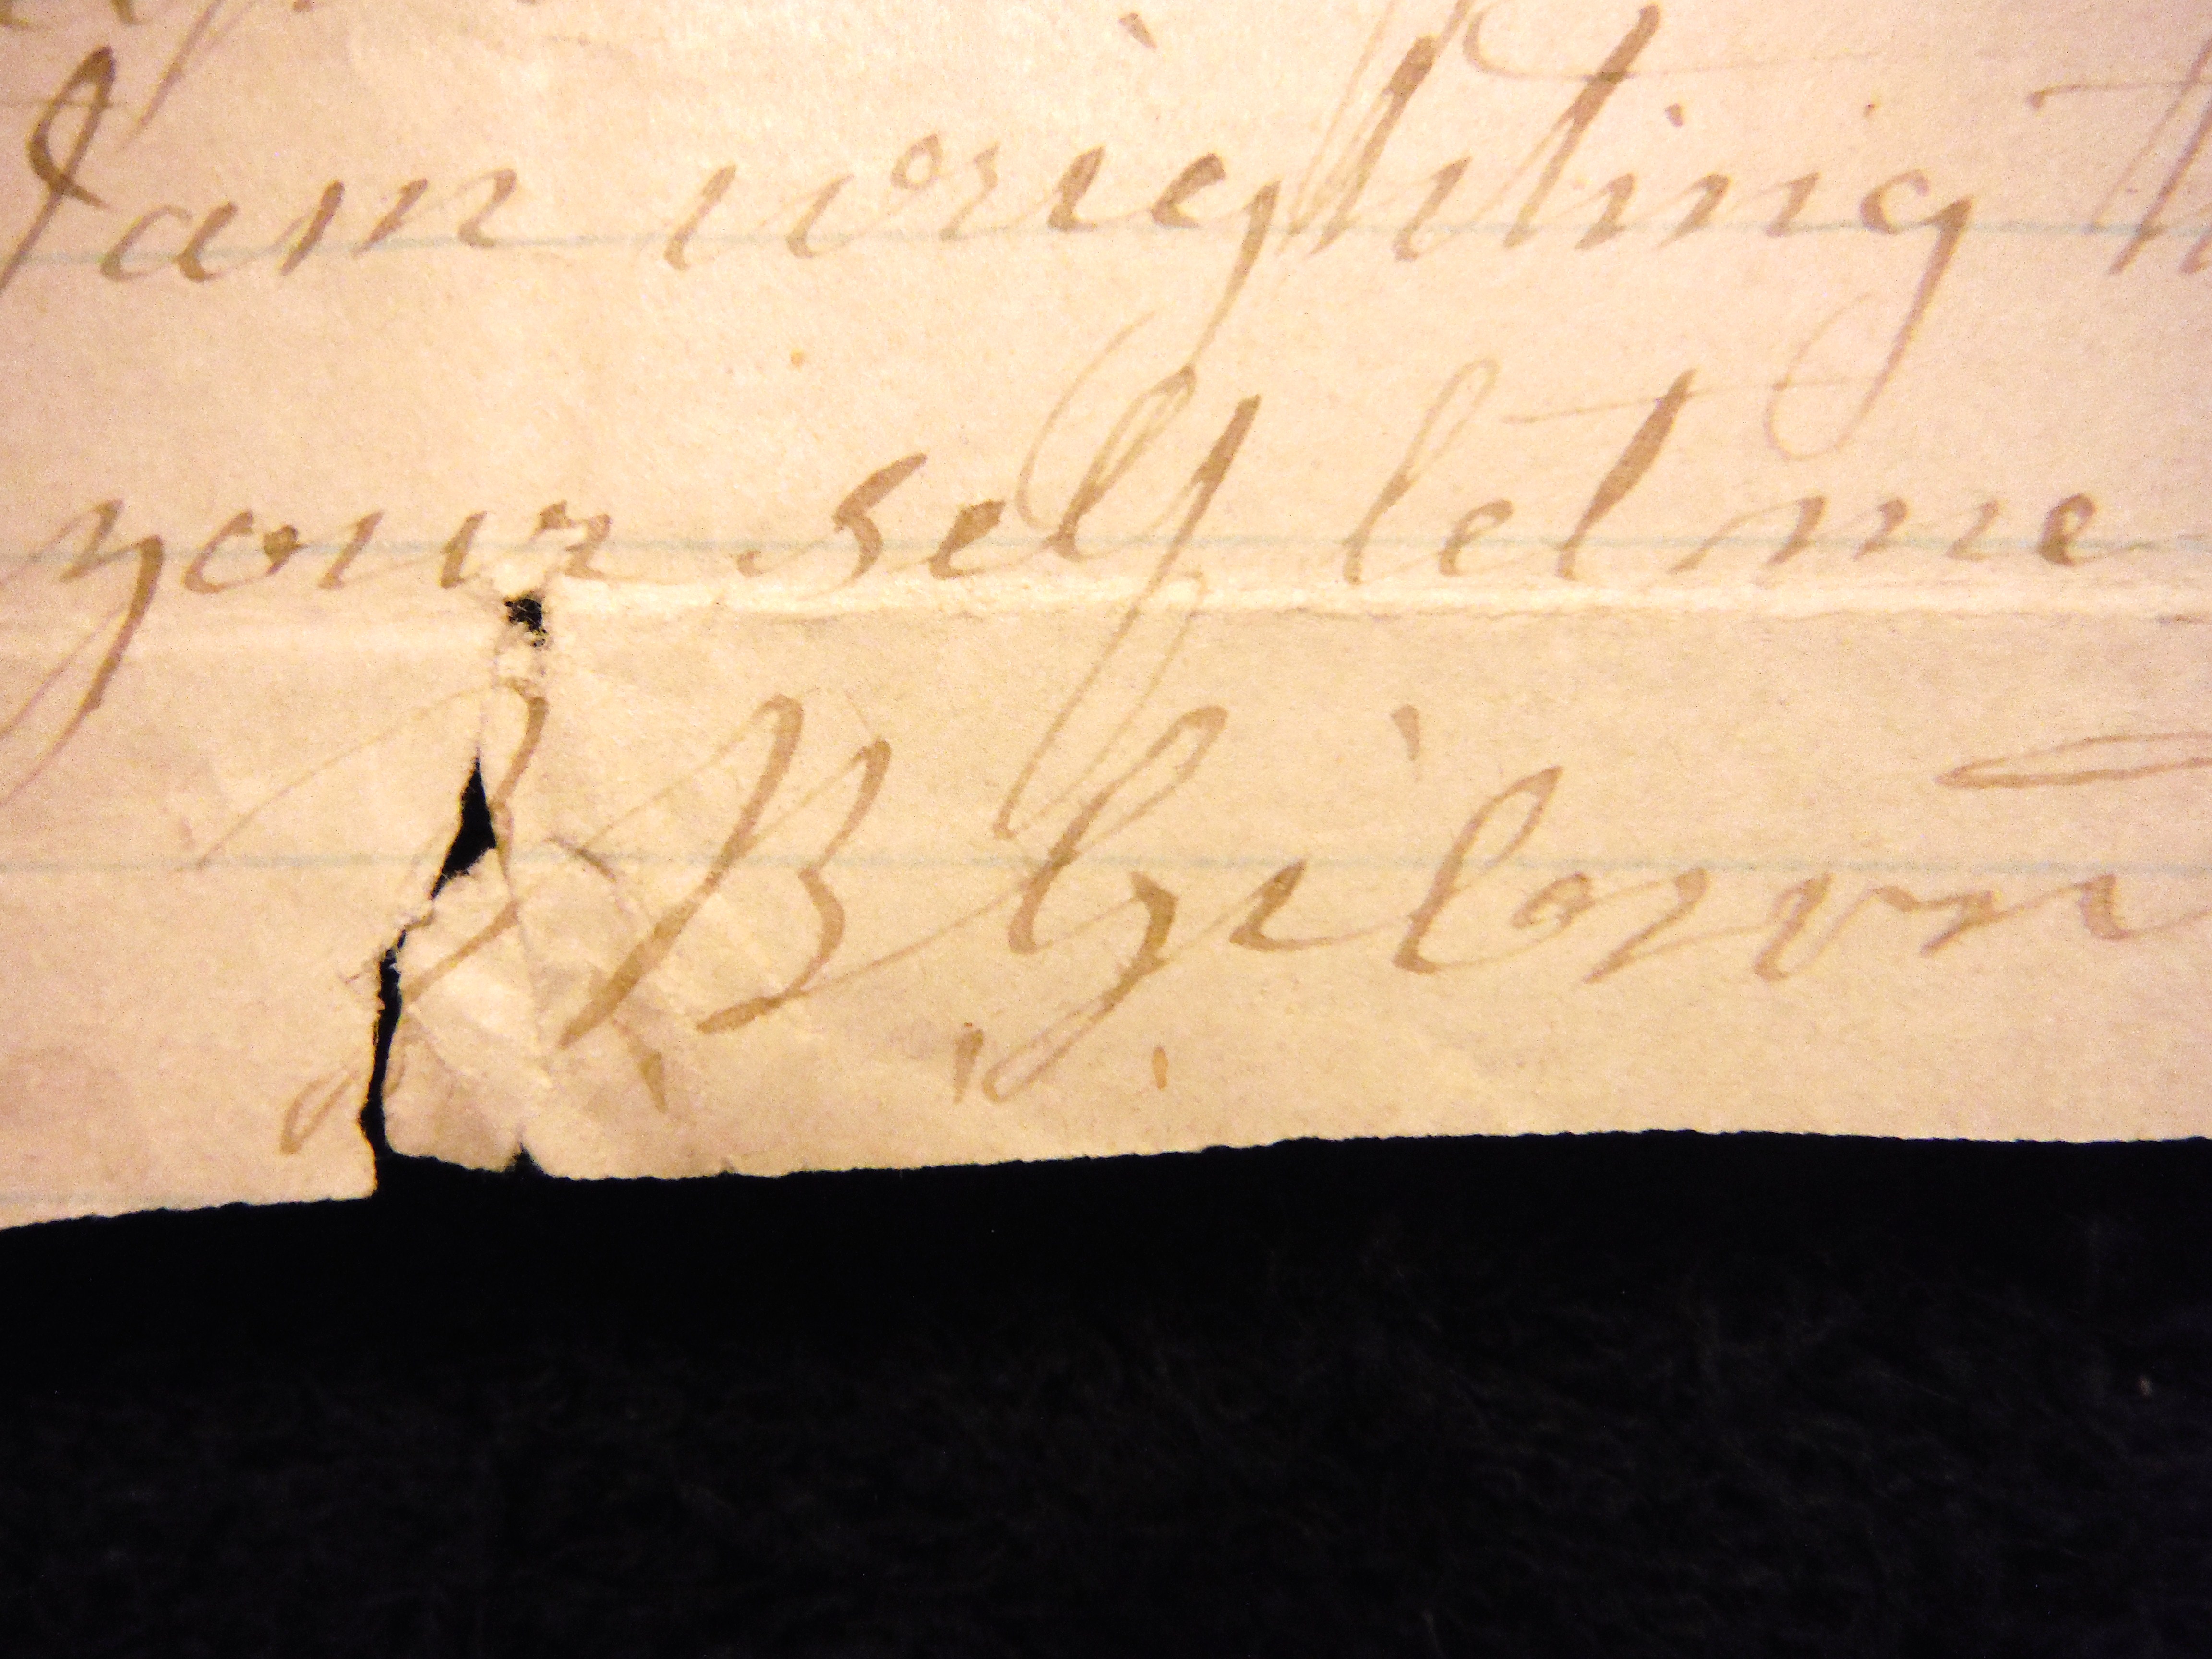 I am wrighting
your self let me
J B Gilson